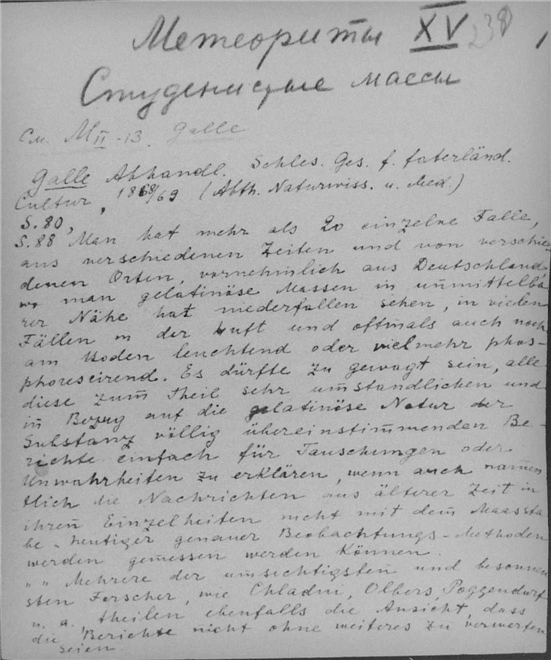 Метеориты XV 238
Студенистые массы
См. M II-13. Galle
Galle Abhandl. Schles. Ges. f. faterländ.
Cultur, 1868/69 (Abth. Naturwiss. u. Med.)
S. 80,
S. 88 Man hat mehr als 20 einzelne Falle,
aus verschiedenen Zeiten und von verschie-
denen Orten, vornehmlich aus Deutschland
wo man gelatinöse Massen in unmittelba
rer Nähe hat niederfallen sehen, in vielen
Fällen in der Luft und oftmals auch noch
am Boden leuchtend oder vielmehr phos-
phorescirend. Es dürfte zu gewagt sein, alle
diese zum Theil sehr umständlichen und
in Bezug auf die gelatinöse Natur der
Substanz völlig übereinstimmenden Be-
richte einfach für Tauschungen oder
Unwahrheiten zu erklären, wenn auch namen
tlich die Nachrichten aus älterer Zeit in
ihren Einzelheiten nicht mit dem Maassta
be heutiger genauer Beobachtungs-Methoden
werden gemessen werden können.
" " Mehrere der umsichtigsten und besonnen
sten Forscher, wie Chladni, Olbers, Poggendorf
u. a. theilen ebenfalls die Ansicht, dass
die Berichte nicht ohne weiteres zu verwerfen
seien